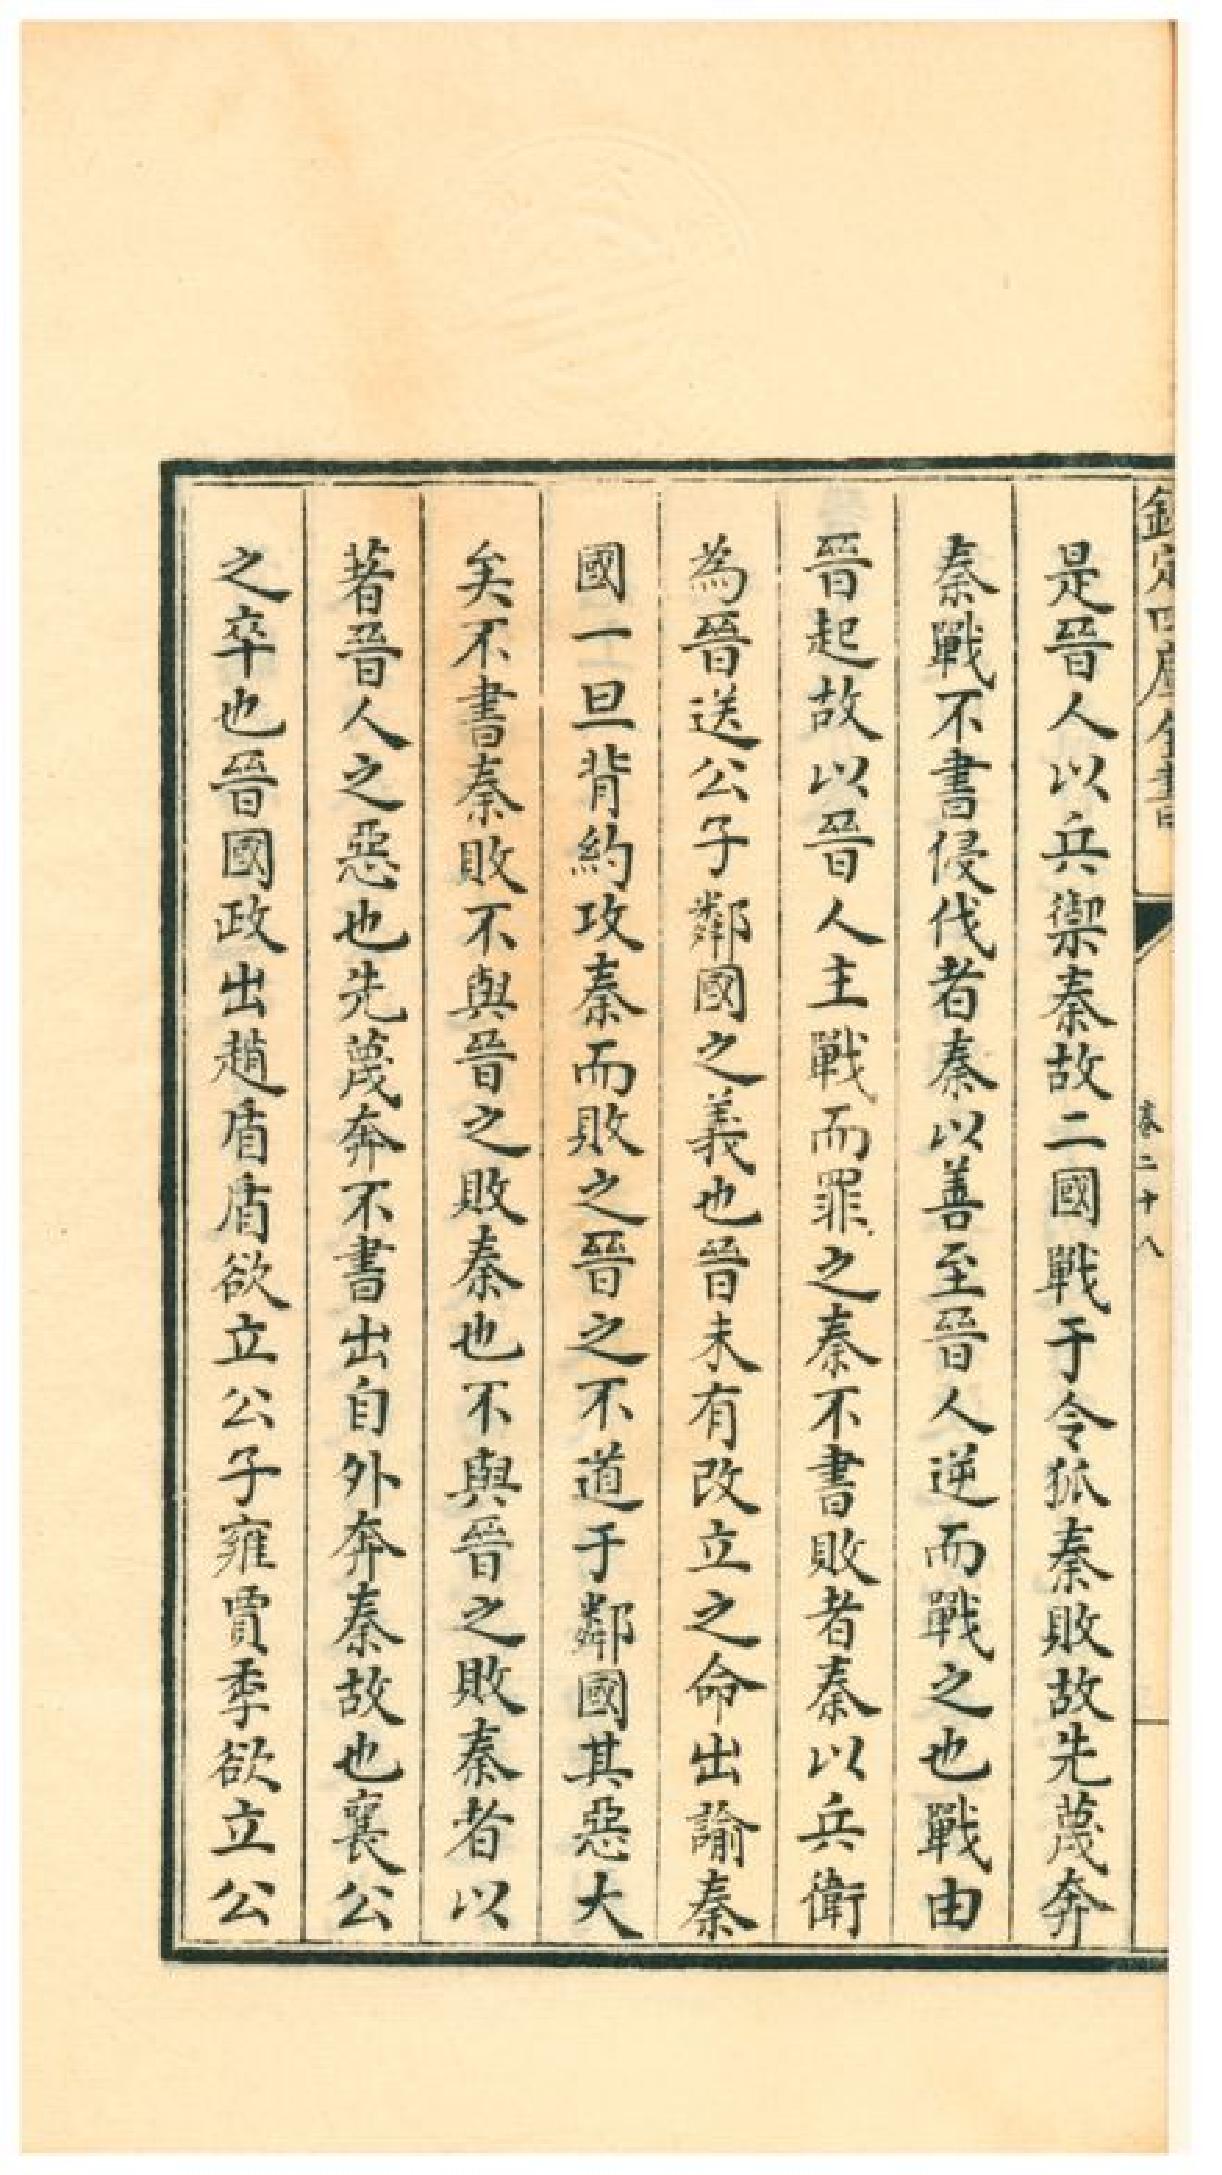 欽定四庫全書
卷二十八
是晉人以兵禦秦故二國戰于令狐秦敗故先蔑奔
秦戰不書侵伐者秦以善至晉人逆而戰之也戰由
晉起故以晉人主戰而罪之秦不書敗者秦以兵衛
為晉送公子鄰國之義也晉未有改立之命出諭秦
國一旦背約攻秦而敗之晉之不道于鄰國其惡大
矣不書秦敗不與晉之敗秦也不與晉之敗秦者以
著晉人之惡也先蔑奔不書出自外奔秦故也襄公
之卒也晉國政出趙盾盾欲立公子雍賈季欲立公